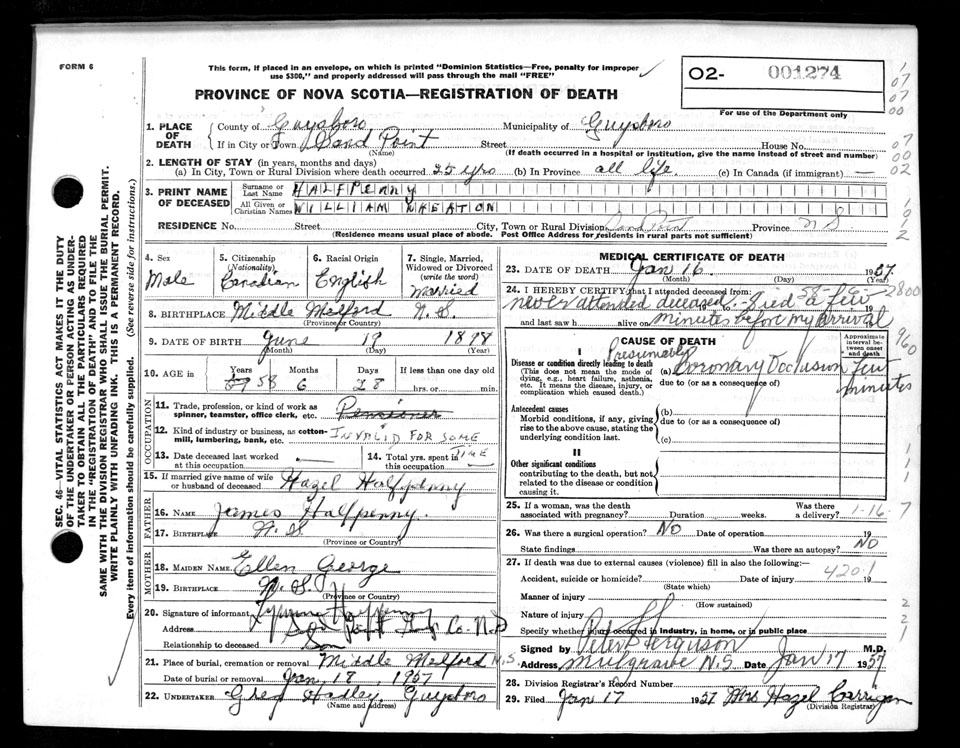 FORM 6
This form, if placed in an envelope, on which is printed "Dominion Statistics—Free, penalty for improper
use $300," and properly addressed will pass through the mail "FREE"
O2- 001274
For use of the Department only
PROVINCE OF NOVA SCOTIA—REGISTRATION OF DEATH
1. PLACE OF DEATH
County of Guysboro Municipality of Guysboro
If in City or Town Sand Point Street House No.
(Name) (If death occurred in a hospital or institution, give the name instead of street and number)
2. LENGTH OF STAY (in years, months and days)
(a) In City, Town or Rural Division where death occurred 25 yrs (b) In Province all life. (c) In Canada (if immigrant) —
3. PRINT NAME OF DECEASED
Surname or Last Name HALFPENNY
All Given or Christian Names WILLIAM WHEATON
RESIDENCE No. Street City, Town or Rural Division Sand Point Province N S
(Residence means usual place of abode. Post Office Address for residents in rural parts not sufficient)
4. Sex Male
5. Citizenship (Nationality) Canadian
6. Racial Origin English
7. Single, Married, Widowed or Divorced (write the word) Married
8. BIRTHPLACE Middle Melford N.S.
(Province or Country)
9. DATE OF BIRTH June 19 1898
(Month) (Day) (Year)
10. AGE in Years Months Days If less than one day old
58 6 28 hrs. or min.
OCCUPATION
11. Trade, profession, or kind of work as spinner, teamster, office clerk, etc. Pensioner
12. Kind of industry or business, as cotton-mill, lumbering, bank, etc. INVALID FOR SOME TIME
13. Date deceased last worked at this occupation —
14. Total yrs. spent in this occupation —
15. If married give name of wife or husband of deceased Hazel Halfpenny
FATHER
16. NAME James Halfpenny.
17. BIRTHPLACE N.S.
(Province or Country)
MOTHER
18. MAIDEN NAME Ellen George
19. BIRTHPLACE N.S.
(Province or Country)
20. Signature of informant Halfpenny
Address Co. N.S
Relationship to deceased Son
21. Place of burial, cremation or removal Middle Melford N.S.
Date of burial or removal Jan. 17, 1957
22. UNDERTAKER Greg Hadley Guysboro
(Name and Address)
MEDICAL CERTIFICATE OF DEATH
23. DATE OF DEATH Jan 16 1957.
(Month) (Day) (Year)
24. I HEREBY CERTIFY that I attended deceased from:
never attended deceased - died a few
and last saw h alive on minutes before my arrival
CAUSE OF DEATH
Approximate interval between onset and death
I
Disease or condition directly leading to death
(This does not mean the mode of dying, e.g., heart failure, asthenia, etc. It means the disease, injury, or complication which caused death.)
Presumably
(a) Coronary Occlusion few minutes
due to (or as a consequence of)
Antecedent causes
Morbid conditions, if any, giving rise to the above cause, stating the underlying condition last.
(b)
due to (or as a consequence of)
(c)
II
Other significant conditions
contributing to the death, but not related to the disease or condition causing it.
25. If a woman, was the death associated with pregnancy? Duration weeks. Was there a delivery? 1-16-7
26. Was there a surgical operation? NO Date of operation 19
State findings Was there an autopsy? NO
27. If death was due to external causes (violence) fill in also the following:—
420.1
Accident, suicide or homicide? Date of injury 19
(State which)
Manner of injury
(How sustained)
Nature of injury
Specify whether injury occurred in industry, in home, or in public place
Signed by Peter Ferguson M.D.
Address Mulgrave N.S. Date Jan 17 1957
28. Division Registrar's Record Number
29. Filed Jan 17 1957 Mrs Hazel Carrigan
(Division Registrar)
SEC. 46—VITAL STATISTICS ACT MAKES IT THE DUTY
OF THE UNDERTAKER OR PERSON ACTING AS UNDER-
TAKER TO OBTAIN ALL THE PARTICULARS REQUIRED
IN THE "REGISTRATION OF DEATH" AND TO FILE THE
SAME WITH THE DIVISION REGISTRAR WHO SHALL ISSUE THE BURIAL PERMIT.
WRITE PLAINLY WITH UNFADING INK. THIS IS A PERMANENT RECORD.
Every item of information should be carefully supplied. (See reverse side for instructions.)